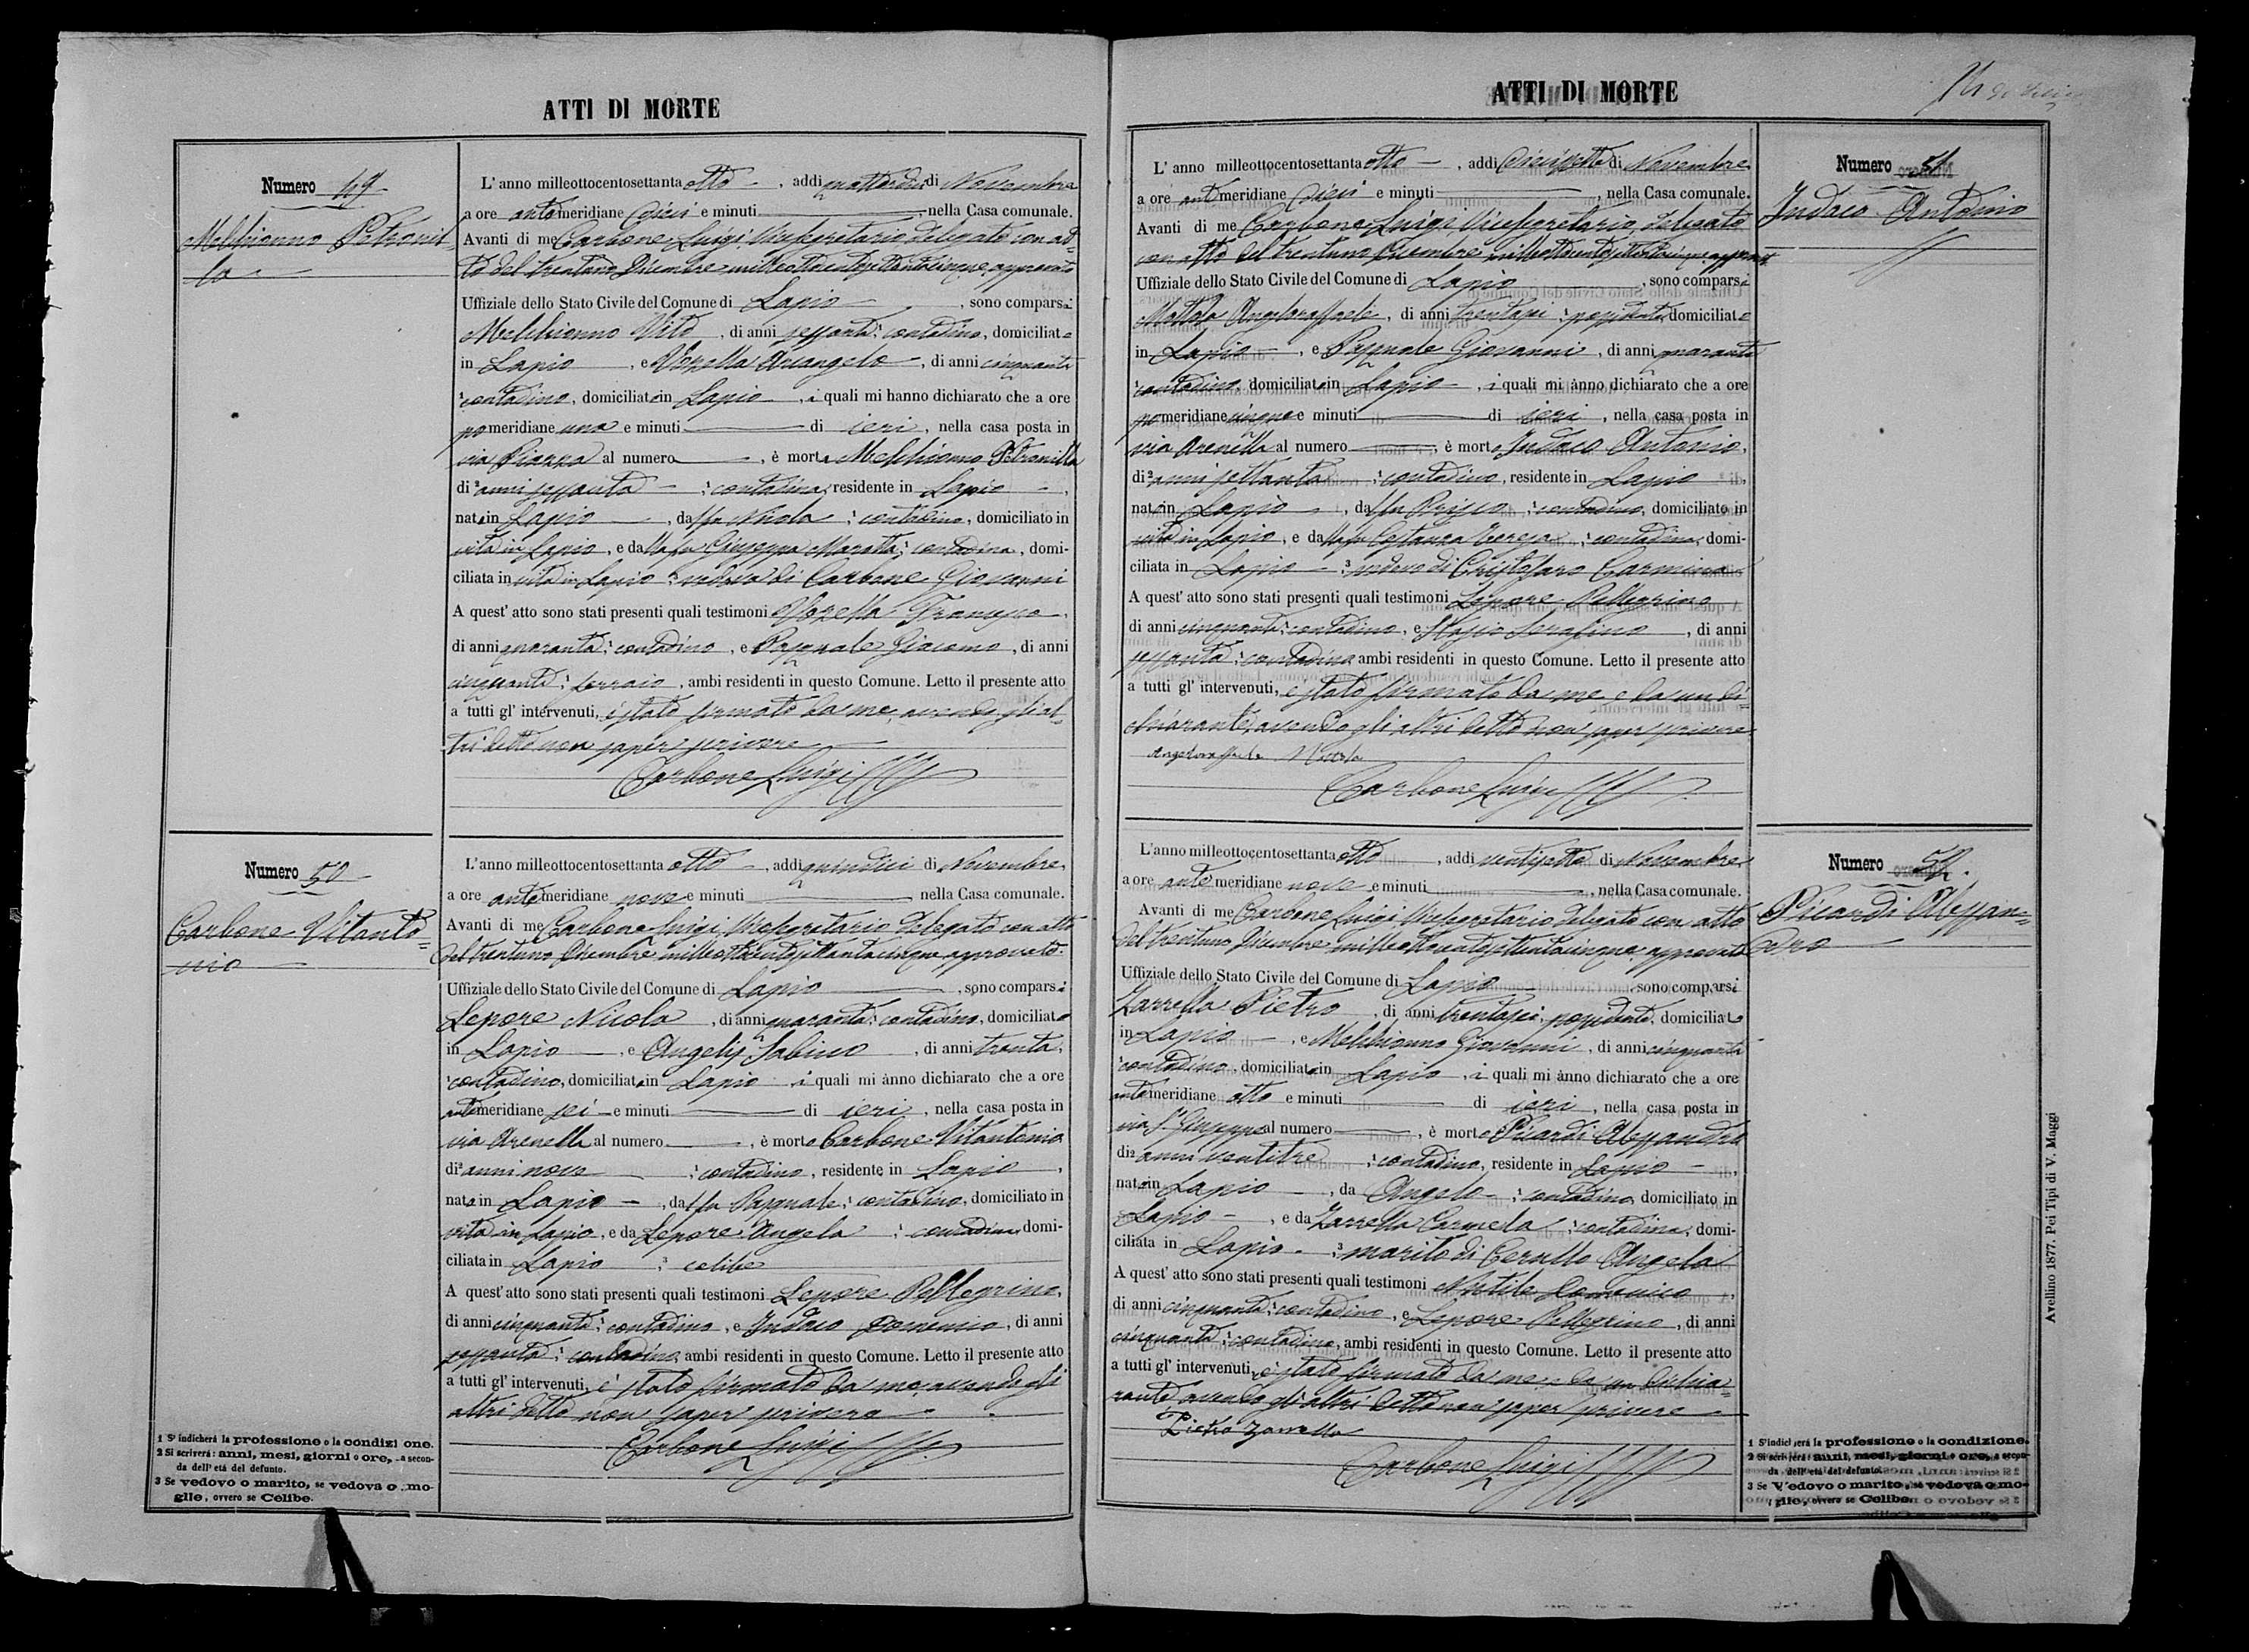 ATTI DI MORTE
Numero 49
Melchionno Petronil=
la
L' anno milleottocentosettanta otto, addi quattordici di Novembre
a ore antimeridiane dieci e minuti, nella Casa comunale.
Avanti di me Carbone Luigi Vicesegretario delegato con at=
to del trentuno Dicembre milleottocentosettantacinque approvato
Uffiziale dello Stato Civile del Comune di Lapio, sono comparsi
Melchionno Vito, di anni sessanta contadino, domiciliato
in Lapio, e Vonella Arcangelo, di anni cinquanta
contadino, domiciliato in Lapio, i quali mi hanno dichiarato che a ore
pomeridiane una e minuti di ieri, nella casa posta in
via Piazza al numero, è morta Melchionno Petronilla
di anni sessanta contadina, residente in Lapio,
nata in Lapio, dal fu Nicola contadino, domiciliato in
vita in Lapio, e dalla fu Giuseppa Maratta contadina, domi-
ciliata in vita in Lapio vedova di Carbone Giovanni
A quest' atto sono stati presenti quali testimoni Vonella Francesco
di anni quaranta contadino, e Pasquale Giacomo, di anni
cinquanta ferraio, ambi residenti in questo Comune. Letto il presente atto
a tutti gl' intervenuti, è stato firmato da me, avendo gli al=
tri detto non saper scrivere
Carbone Luigi
Numero 50
Carbone Vitanto=
nio
L' anno milleottocentosettanta otto, addi quindici di Novembre
a ore antimeridiane nove e minuti nella Casa comunale.
Avanti di me Carbone Luigi Vicesegretario delegato con atto
del trentuno Dicembre milleottocentosettantacinque approvato
Uffiziale dello Stato Civile del Comune di Lapio, sono comparsi
Lepore Nicola, di anni quaranta contadino, domiciliato
in Lapio, e Angelis Sabino, di anni trenta
contadino, domiciliato in Lapio i quali mi ànno dichiarato che a ore
antimeridiane sei e minuti di ieri, nella casa posta in
via Arenella al numero, è morto Carbone Vitantonio
di anni nove contadino, residente in Lapio,
nato in Lapio, dal fu Pasquale contadino, domiciliato in
vita in Lapio, e da Lepore Angela contadina domi-
ciliata in Lapio celibe
A quest' atto sono stati presenti quali testimoni Lepore Pellegrino,
di anni cinquanta contadino, e Indaco Domenico, di anni
sessanta contadino, ambi residenti in questo Comune. Letto il presente atto
a tutti gl' intervenuti, è stato firmato da me, avendo gli
altri detto non saper scrivere
Carbone Luigi
1 S' indicherà la professione o la condizione.
2 Si scriverà: anni, mesi, giorni o ore, a secon-
da dell' età del defunto.
3 Se vedovo o marito, se vedova o mo-
glie, ovvero se Celibe.
ATTI DI MORTE
Numero 51
Indaco Antonio
L' anno milleottocentosettanta otto, addi diecisette di Novembre
a ore antimeridiane dieci e minuti, nella Casa comunale.
Avanti di me Carbone Luigi Vicesegretario, delegato
con atto del trentuno Dicembre milleottocentosettantacinque approvato
Uffiziale dello Stato Civile del Comune di Lapio, sono comparsi
Mottola Angloraffaele, di anni trentasei possidente, domiciliato
in Lapio, e Pasquale Giovanni, di anni quaranta
contadino, domiciliato in Lapio, i quali mi ànno dichiarato che a ore
pomeridiane cinque e minuti di ieri, nella casa posta in
via Arenella al numero, è morto Indaco Antonio,
di anni settanta contadino, residente in Lapio,
nato in Lapio, dal fu Prisco contadino, domiciliato in
vita in Lapio, e dalla fu Costanza Teresa contadina, domi-
ciliata in Lapio vedovo di Cristofaro Carmina
A quest' atto sono stati presenti quali testimoni Lepore Pellegrino
di anni cinquanta contadino, e Serafino, di anni
sessanta contadino, ambi residenti in questo Comune. Letto il presente atto
a tutti gl' intervenuti, è stato firmato da me e da un di=
chiarante, avendo gli altri detto non saper scrivere
Carbone Luigi
Numero 52.
Picardi Alessan=
dro
L' anno milleottocentosettanta otto, addi ventisette di Novembre
a ore antimeridiane nove e minuti, nella Casa comunale.
Avanti di me Carbone Luigi Vicesegretario delegato con atto
del trentuno Dicembre milleottocentosettantacinque approvato
Uffiziale dello Stato Civile del Comune di Lapio sono comparsi
Zarrella Pietro, di anni trentasei possidente, domiciliato
in Lapio, e Melchionno Giovanni, di anni cinquanta
contadino, domiciliato in Lapio, i quali mi ànno dichiarato che a ore
antimeridiane otto e minuti di ieri, nella casa posta in
via S. Giuseppe al numero, è morto Picardi Alessandro
di anni ventitre contadino, residente in Lapio,
nato in Lapio, da Angelo contadino, domiciliato in
Lapio, e da Zarrella Carmela contadina, domi-
ciliata in Lapio marito di Cerullo Angela
A quest' atto sono stati presenti quali testimoni Nutile Domenico,
di anni cinquanta contadino, e Lepore Pellegrino, di anni
cinquanta contadino, ambi residenti in questo Comune. Letto il presente atto
a tutti gl' intervenuti, è stato firmato da me e da un dichia=
rante, avendo gli altri detto non saper scrivere
Pietro Zarrella
Carbone Luigi
1 S' indicherà la professione o la condizione.
2 Si scriverà: anni, mesi, giorni o ore, a secon-
da dell' età del defunto.
3 Se Vedovo o marito, se vedova o mo-
glie, ovvero se Celibe.
Avellino 1877. Pei Tipi di V. Maggi